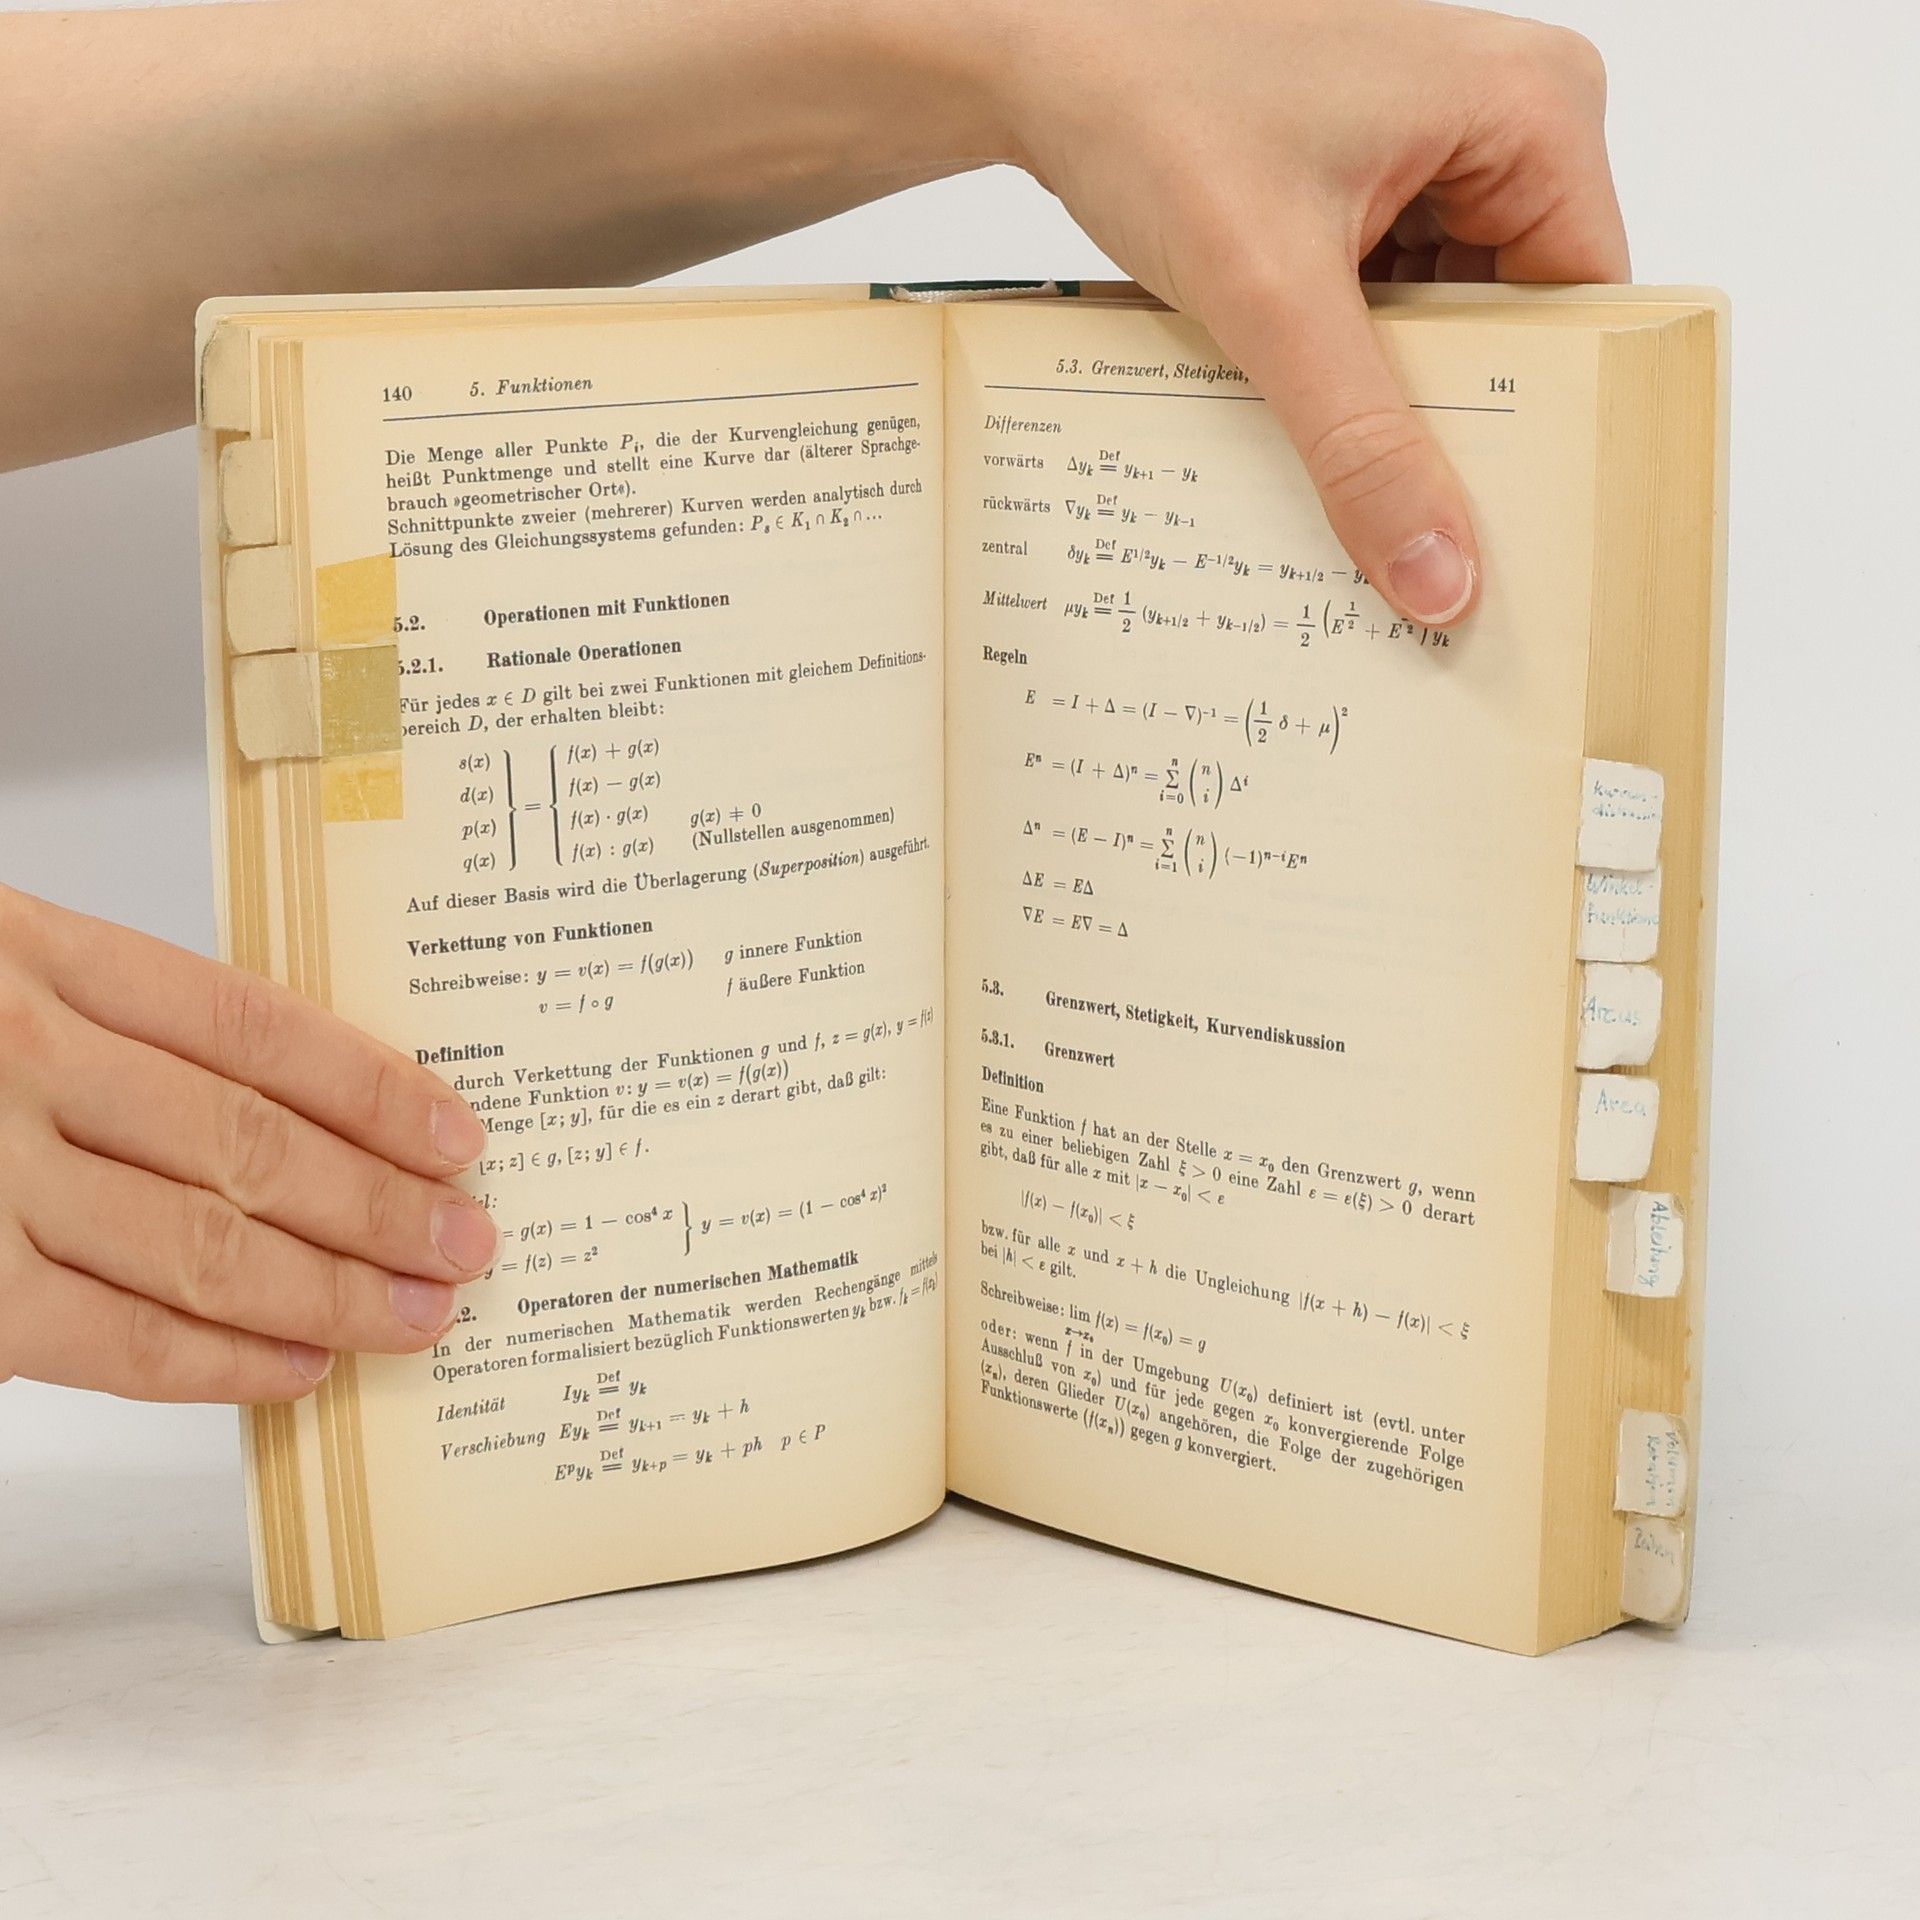 140 5. Funktionen
Die Menge aller Punkte Pᵢ, die der Kurvengleichung genügen,
heißt Punktmenge und stellt eine Kurve dar (älterer Sprachge-
brauch »geometrischer Ort«).
Schnittpunkte zweier (mehrerer) Kurven werden analytisch durch
Lösung des Gleichungssystems gefunden: Pₛ ∈ K₁ ∩ K₂ ∩ ...
5.2. Operationen mit Funktionen
5.2.1. Rationale Operationen
Für jedes x ∈ D gilt bei zwei Funktionen mit gleichem Definitions-
bereich D, der erhalten bleibt:
s(x) f(x) + g(x)
d(x) f(x) − g(x)
=
p(x) f(x) · g(x) g(x) ≠ 0
q(x) f(x) : g(x) (Nullstellen ausgenommen)
Auf dieser Basis wird die Überlagerung (Superposition) ausgeführt.
Verkettung von Funktionen
Schreibweise: y = v(x) = f(g(x)) g innere Funktion
v = f ∘ g f äußere Funktion
Definition
durch Verkettung der Funktionen g und f, z = g(x), y = f(z)
ndene Funktion v: y = v(x) = f(g(x))
Menge [x; y], für die es ein z derart gibt, daß gilt:
[x; z] ∈ g, [z; y] ∈ f.
= g(x) = 1 − cos⁴ x } y = v(x) = (1 − cos⁴ x)²
y = f(z) = z²
.2. Operatoren der numerischen Mathematik
In der numerischen Mathematik werden Rechengänge mittels
Operatoren formalisiert bezüglich Funktionswerten yₖ bzw. fₖ = f(xₖ)
Identität Iyₖ Def= yₖ
Verschiebung Eyₖ Def= yₖ₊₁ = yₖ + h
Eᵖyₖ Def= yₖ₊ₚ = yₖ + ph p ∈ P
5.3. Grenzwert, Stetigkeit, 141
Differenzen
vorwärts Δyₖ Def= yₖ₊₁ − yₖ
rückwärts ∇yₖ Def= yₖ − yₖ₋₁
zentral δyₖ Def= E^1/2 yₖ − E^−1/2 yₖ = yₖ₊₁/₂ −
Mittelwert μyₖ Def= 1/2 (yₖ₊₁/₂ + yₖ₋₁/₂) = 1/2 (E^1/2 + E^−1/2) yₖ
Regeln
E = I + Δ = (I − ∇)⁻¹ = (1/2 δ + μ)²
Eⁿ = (I + Δ)ⁿ = Σ i=0 n (n i) Δⁱ
Δⁿ = (E − I)ⁿ = Σ i=1 n (n i) (−1)ⁿ⁻ⁱEⁿ
ΔE = EΔ
∇E = E∇ = Δ
5.3. Grenzwert, Stetigkeit, Kurvendiskussion
5.3.1. Grenzwert
Definition
Eine Funktion f hat an der Stelle x = x₀ den Grenzwert g, wenn
es zu einer beliebigen Zahl ξ > 0 eine Zahl ε = ε(ξ) > 0 derart
gibt, daß für alle x mit |x − x₀| < ε
|f(x) − f(x₀)| < ξ
bzw. für alle x und x + h die Ungleichung |f(x + h) − f(x)| < ξ
bei |h| < ε gilt.
Schreibweise: lim x→x₀ f(x) = f(x₀) = g
oder: wenn f in der Umgebung U(x₀) definiert ist (evtl. unter
Ausschluß von x₀) und für jede gegen x₀ konvergierende Folge
(xₙ), deren Glieder U(x₀) angehören, die Folge der zugehörigen
Funktionswerte (f(xₙ)) gegen g konvergiert.
Winkel-
Funktionen
Arcus
Area
Ableitung
Volumen
Rotation